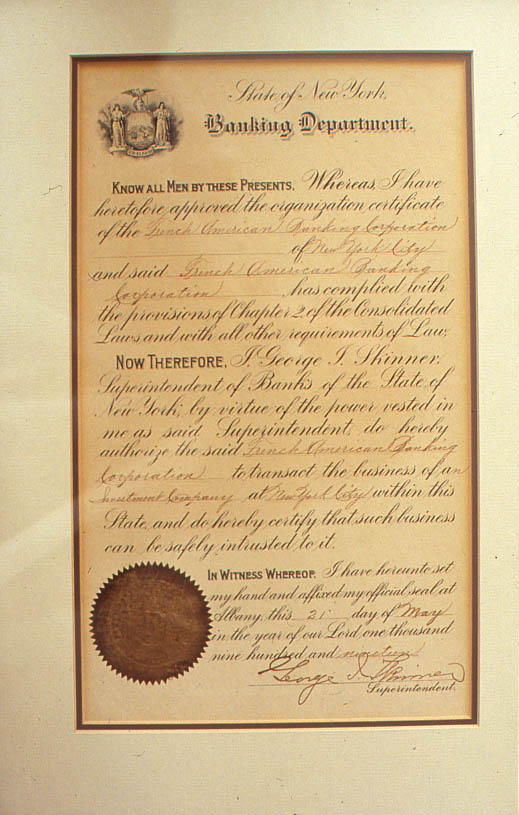 State of New York,
Banking Department.
KNOW ALL MEN BY THESE PRESENTS, Whereas, I have
heretofore approved the organization certificate
of the French American Banking Corporation
of New York City
and said French American Banking
Corporation has complied with
the provisions of Chapter 2, of the Consolidated
Laws and with all other requirements of Law;
NOW THEREFORE, I, George I. Skinner,
Superintendent of Banks of the State of
New York, by virtue of the power vested in
me as said Superintendent, do hereby
authorize the said French American Banking
Corporation to transact the business of an
Investment Company at New York City within this
State, and do hereby certify that such business
can be safely intrusted to it.
IN WITNESS WHEREOF, I have hereunto set
my hand and affixed my official seal at
Albany, this 21st day of May
in the year of our Lord one thousand
nine hundred and nineteen
George I. Skinner
Superintendent.